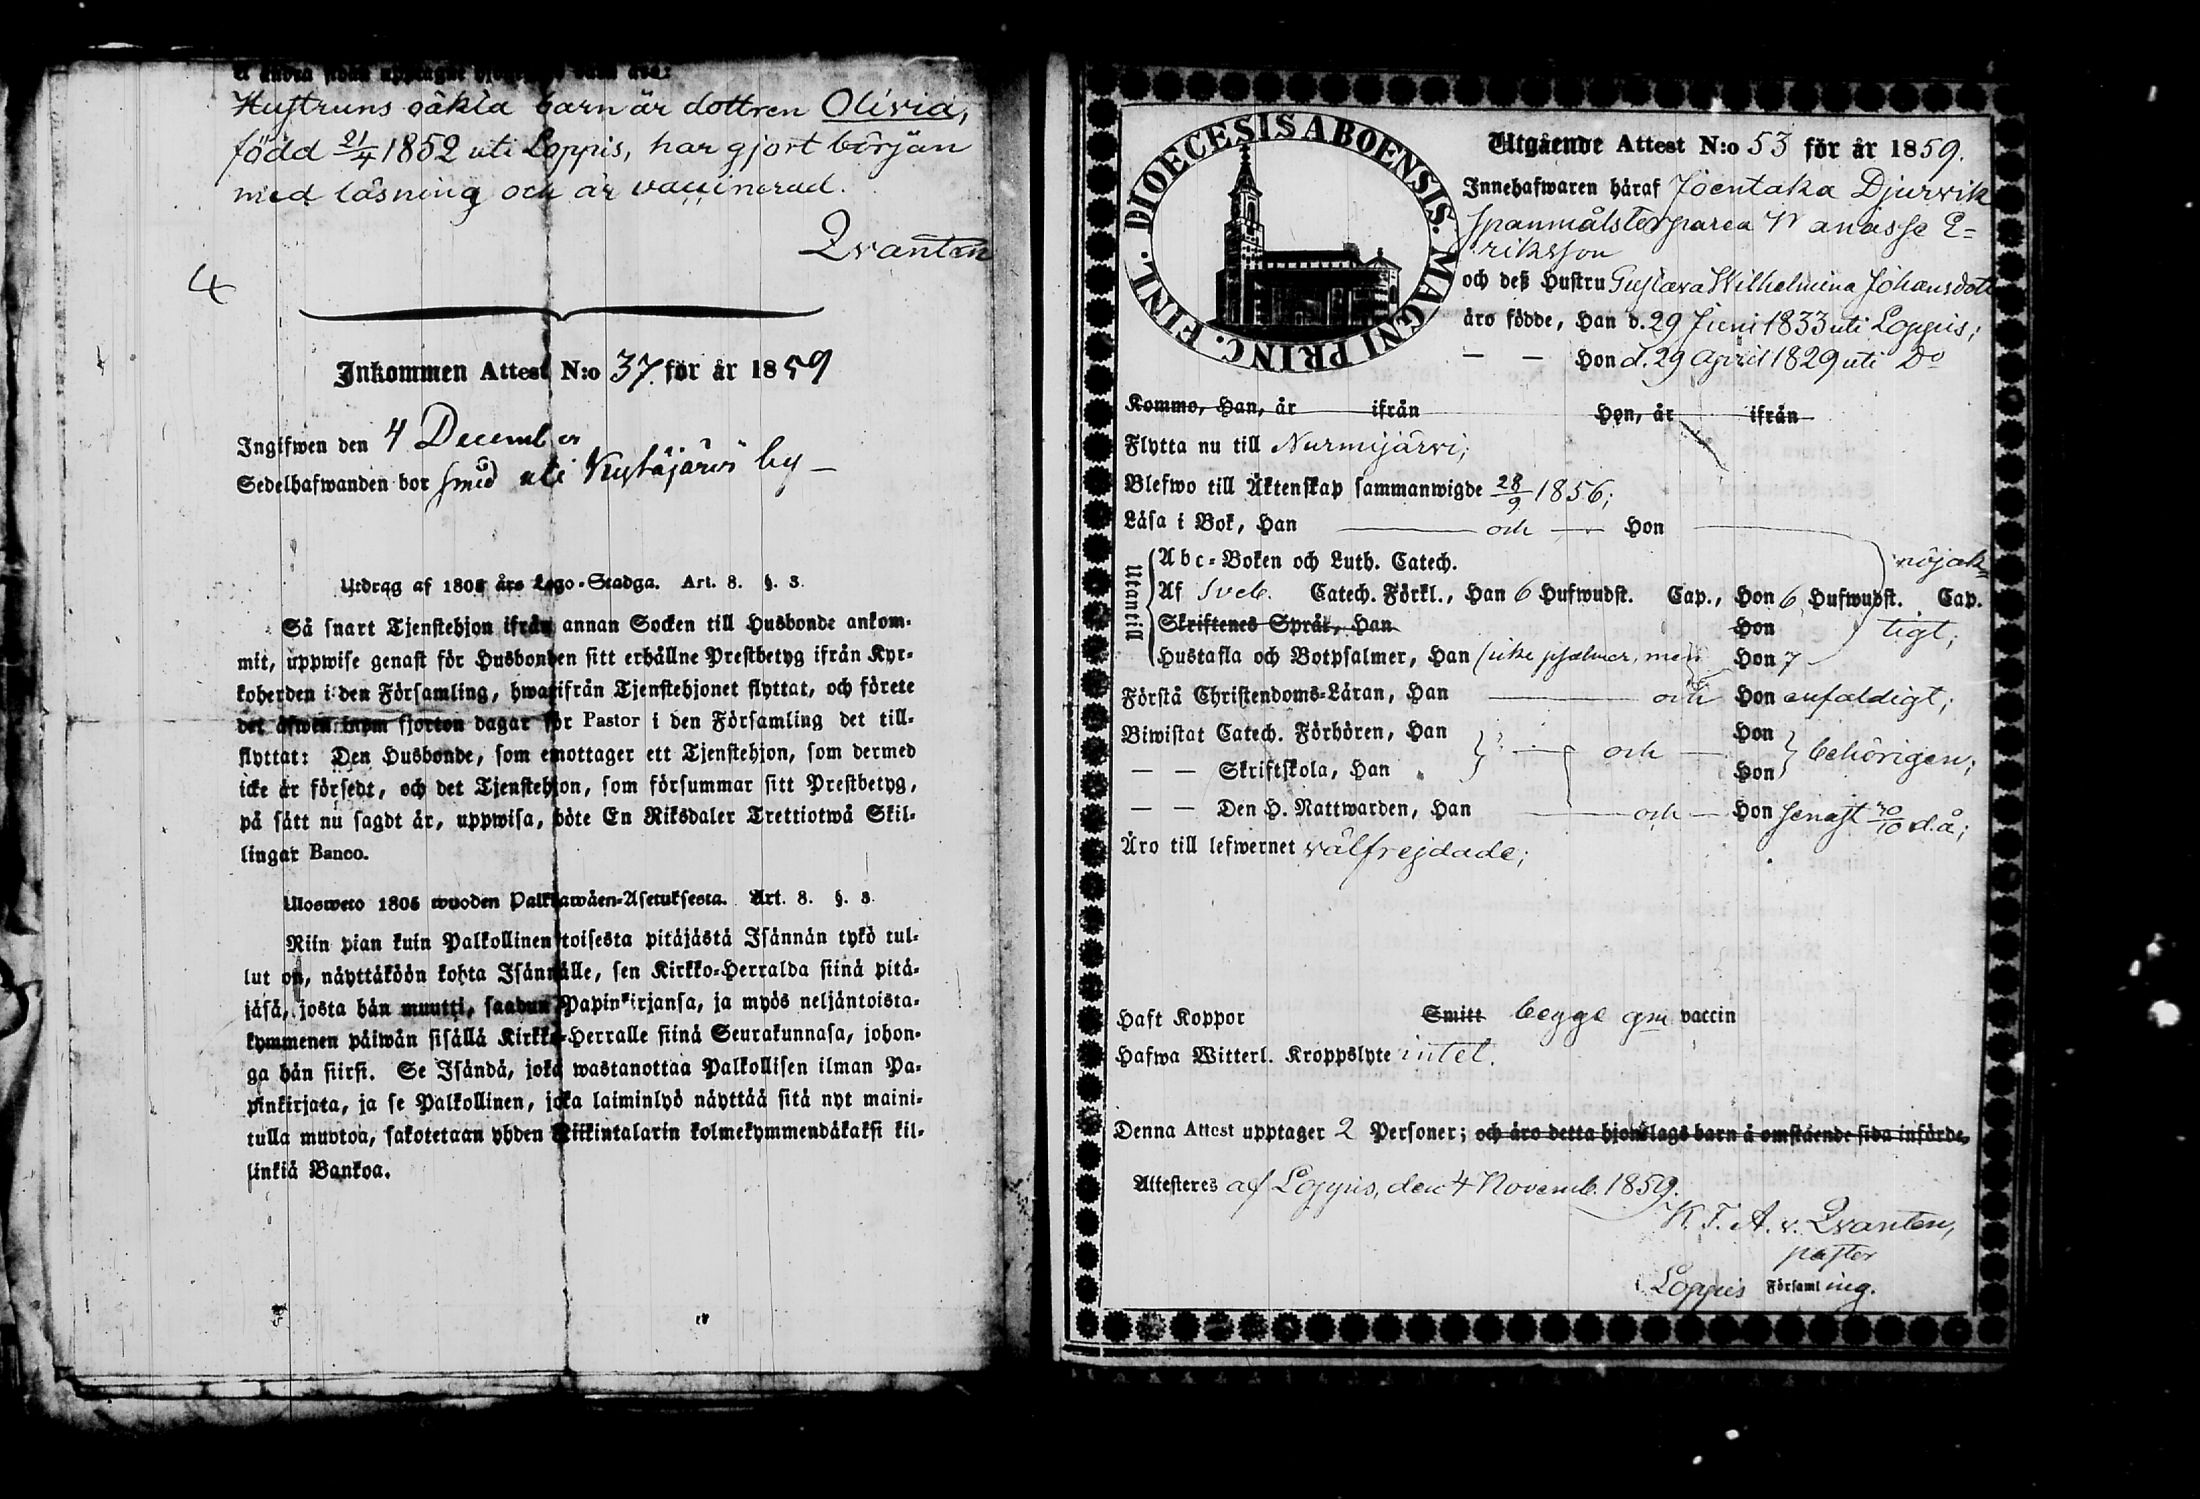 Hustruns oäkta barn är dottren Olivia,
född 21/4 1852 uti Loppis, har gjort början
med läsning och är vaccinerad.
Qvanten
4
Inkommen Attest N:o 37 för år 1859
Ingifwen den 4 December
Sedelhafwanden bor uti Kytäjärvi by –
Utdrag af 1805 års Lego-Stadga. Art. 8. §. 3.
Så snart Tjenstehjon ifrån annan Socken till Husbonde ankom-
mit, uppwise genast för Husbonden sitt erhållne Prestbetyg ifrån Kyr-
koherden i den Församling, hwarifrån Tjenstehjonet flyttat, och förete
det äfwen inom fjorton dagar för Pastor i den Församling det till-
flyttat: Den Husbonde, som emottager ett Tjenstehjon, som dermed
icke är försedt, och det Tjenstehjon, som försummar sitt Prestbetyg,
på sätt nu sagdt är, uppwisa, böte En Riksdaler Trettiotwå Skil-
lingar Banco.
Ulosweto 1805 wuoden Palkkawäen-Asetuksesta. Art. 8. §. 3.
Niin pian kuin Palkollinen toisesta pitäjästä Isännän tykö tul-
lut on, näyttäköön kohta Isännälle, sen Kirkko-Herralda siinä pitä-
jäsä, josta hän muutti, saadun Papinkirjansa, ja myös neljäntoista-
kymmenen päiwän sisällä Kirkko-Herralle siinä Seurakunnasa, johon-
ga hän siirsi. Se Isändä, joka wastanottaa Palkollisen ilman Pa-
pinkirjata, ja se Palkollinen, joka laiminlyö näyttää sitä nyt maini-
tulla muotoa, sakotetaan yhden Riikintalarin kolmekymmendäkaksi kil-
linkiä Bankoa.
DIOECESIS ABOENSIS. MAGNI PRINC. FINL.
Utgående Attest N:o 53 för år 1859.
Innehafwaren häraf Joentaka Djurvik
Spanmålstorparea Manasse E-
riksson
och deß Hustru Gustava Wilhelmina Johansdotr
äro födde, Han d. 29 Juni 1833 uti Loppis;
— — Hon d. 29 April 1829 uti Do
Kommo, Han, år ifrån Hon, år ifrån
Flytta nu till Nurmijärvi;
Blefwo till Äktenskap sammanwigde 28/9 1856;
Läsa i Bok, Han och Hon
Utantill
Abc-Boken och Luth. Catech. nöjak-
Af Sveb. Catech. Förkl., Han 6 Hufwudst. Cap., Hon 6 Hufwudst. Cap.
Skriftenes Språk, Han Hon tigt;
Hustafla och Botpsalmer, Han (icke psalmer, men Hon
Förstå Christendoms-Läran, Han och Hon enfaldigt;
Biwistat Catech. Förhören, Han och Hon behörigen;
— — Skriftskola, Han Hon
— — Den H. Nattwarden, Han och Hon senast 30/10 d.å;
Äro till lefwernet välfrejdade;
Haft Koppor Smitt begge gm vaccin
Hafwa Witterl. Kroppslyte intet.
Denna Attest upptager 2 Personer; och äro detta hjonslags barn å omstående sida införde.
Attesteres af Loppis, den 4 Novemb. 1859.
K. F. A. v. Qvanten,
pastor
i Loppis Församling.